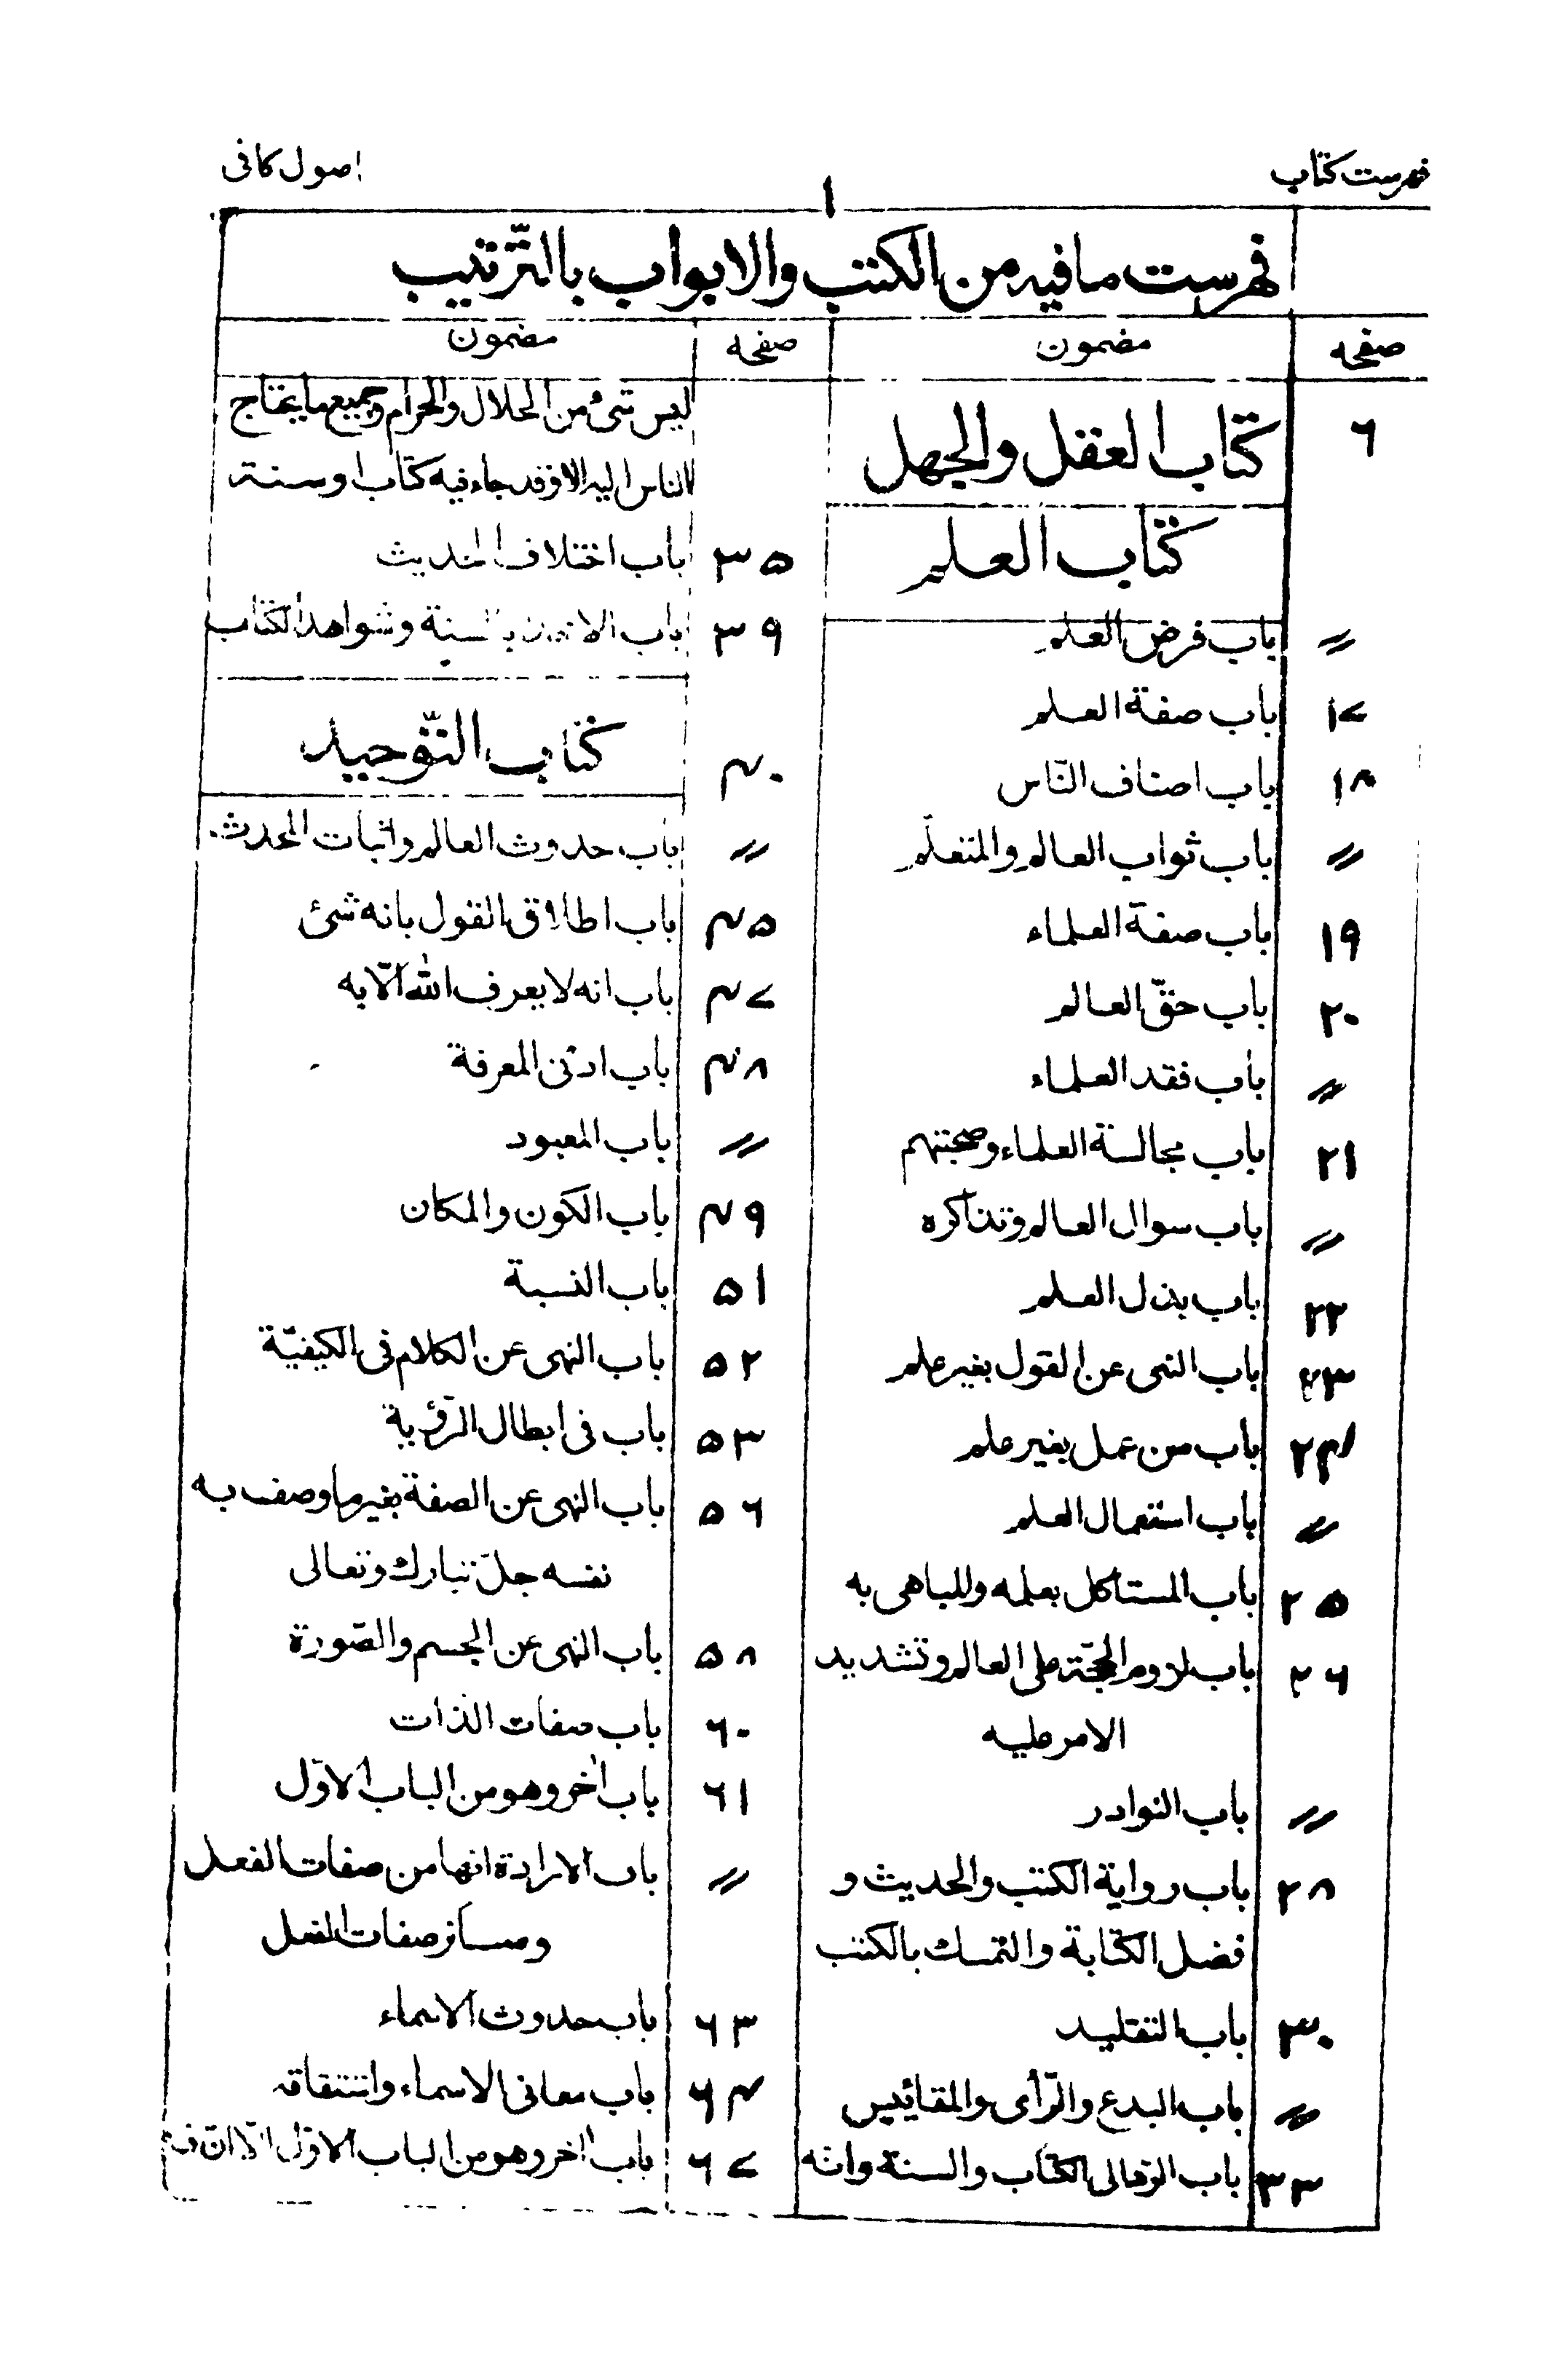 فهرست کتاب
۱
اصول کافی
فهرست مافیه من الکتب والابواب بالتّرتیب
صفحه مضمون
۶ کتاب العقل والجهل
کتاب العلم
〃 باب فرض العلم
۱۷ باب صفة العلم
۱۸ باب اصناف النّاس
〃 باب ثواب العالم والمتعلّم
۱۹ باب صفة العلماء
۲۰ باب حقّ العالم
〃 باب فقد العلماء
۲۱ باب مجالسة العلماء وصحبتهم
〃 باب سوال العالم وتذاکره
۲۲ باب بذل العلم
۲۳ باب النهی عن القول بغیر علم
۲۴ باب من عمل بغیر علم
〃 باب استعمال العلم
۲۵ باب المستأکل بعلمه والمباهی به
۲۶ باب لزوم الحجّة علی العالم وتشدید
الامر علیه
〃 باب النوادر
۲۸ باب روایة الکتب والحدیث و
فضل الکتابة والتمسك بالکتب
۳۰ باب التقلید
〃 باب البدع والرّأی والمقائیس
۳۳ باب الرد الی الکتاب والسنة وانه
صفحه مضمون
لیس شیٔ من الحلال والحرام وجمیع مایحتاج
الناس الیه الا وقد جاء فیه کتاب او سنة
۳۵ باب اختلاف الحدیث
۳۹ باب الاخذ بالسنة وشواهد الکتاب
۴۰ کتاب التّوحید
〃 باب حدوث العالم واثبات المحدث
۴۵ باب اطلاق القول بانه شئ
۴۷ باب انه لا یعرف الله الّا به
۴۸ باب ادنی المعرفة
〃 باب المعبود
۴۹ باب الکون والمکان
۵۱ باب النسبة
۵۲ باب النهی عن الکلام فی الکیفیّة
۵۳ باب فی ابطال الرّؤیة
۵۶ باب النهی عن الصفة بغیر ما وصف به
نفسه جلّ تبارك وتعالی
۵۸ باب النهی عن الجسم والصّورة
۶۰ باب صفات الذات
۶۱ باب اٰخر وهو من الباب الاوّل
〃 باب الارادة انها من صفات الفعل
وسائر صفات الفعل
۶۳ باب حدوث الاسماء
۶۴ باب معانی الاسماء واشتقاقه
۶۷ باب اٰخر وهو من الباب الاوّل الّا انّ فی